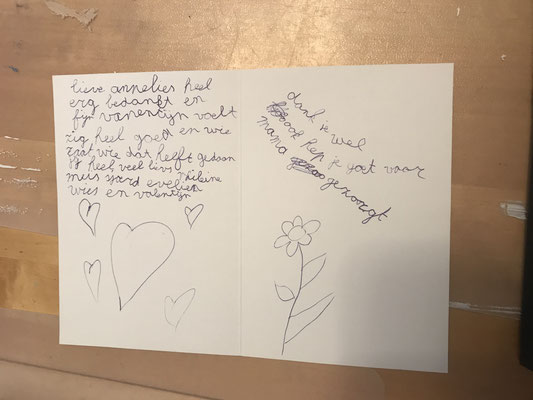 lieve annelies heel
erg bedankt en
fijn vanentijn voelt
zig heel goed en wie
dat heeft gedaan
heel veel liefs
muis sjard evelien
en valentijn
dank je wel
ook heb je goet voor
mama gezorgt